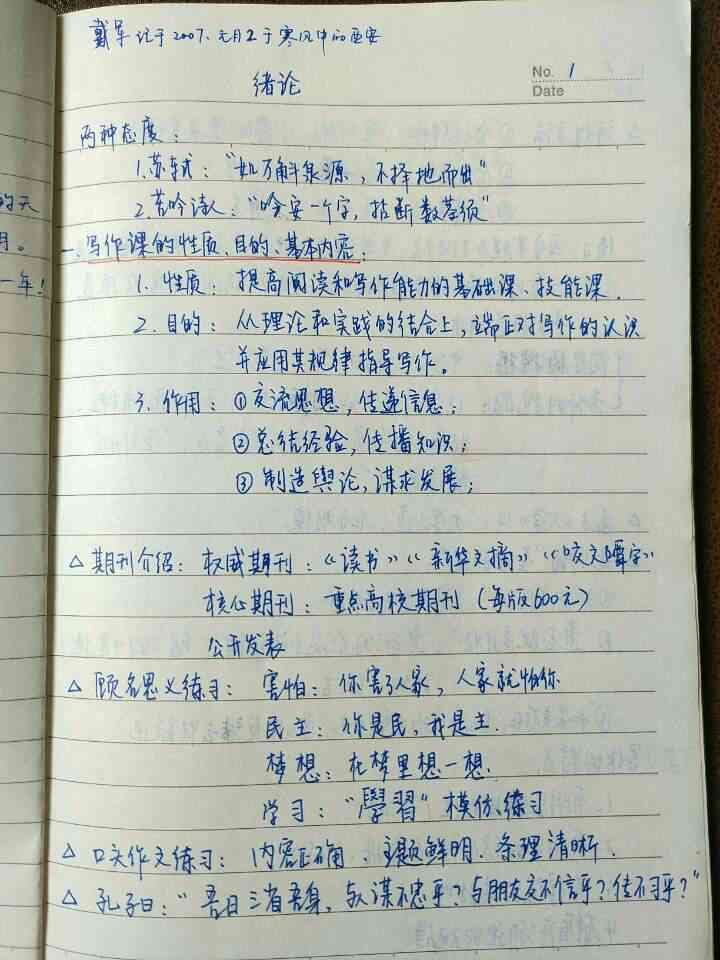 戴军 记于2007.元月2于寒风中的西安
绪论
No. 1
Date
两种态度:
1.苏轼:“如万斛泉源,不择地而出”
2.苦吟诗人:“吟安一个字,拈断数茎须”
一.写作课的性质、目的、基本内容:
1.性质:提高阅读和写作能力的基础课、技能课.
2.目的:从理论和实践的结合上,端正对写作的认识
并应用其规律指导写作。
3.作用:①交流思想,传递信息;
②总结经验,传播知识;
③制造舆论,谋求发展;
△期刊介绍:权威期刊:《读书》《新华文摘》《咬文嚼字》
核心期刊:重点高校期刊(每版600元)
公开发表
△顾名思义练习:害怕:你害了人家,人家就怕你
民主:你是民,我是主.
梦想:在梦里想一想.
学习:“學習”模仿、练习
△口头作文练习:内容正确、主题鲜明、条理清晰.
△孔子曰:“吾日三省吾身,与人谋不忠乎?与朋友交不信乎?传不习乎?”
的天
月。
一年!